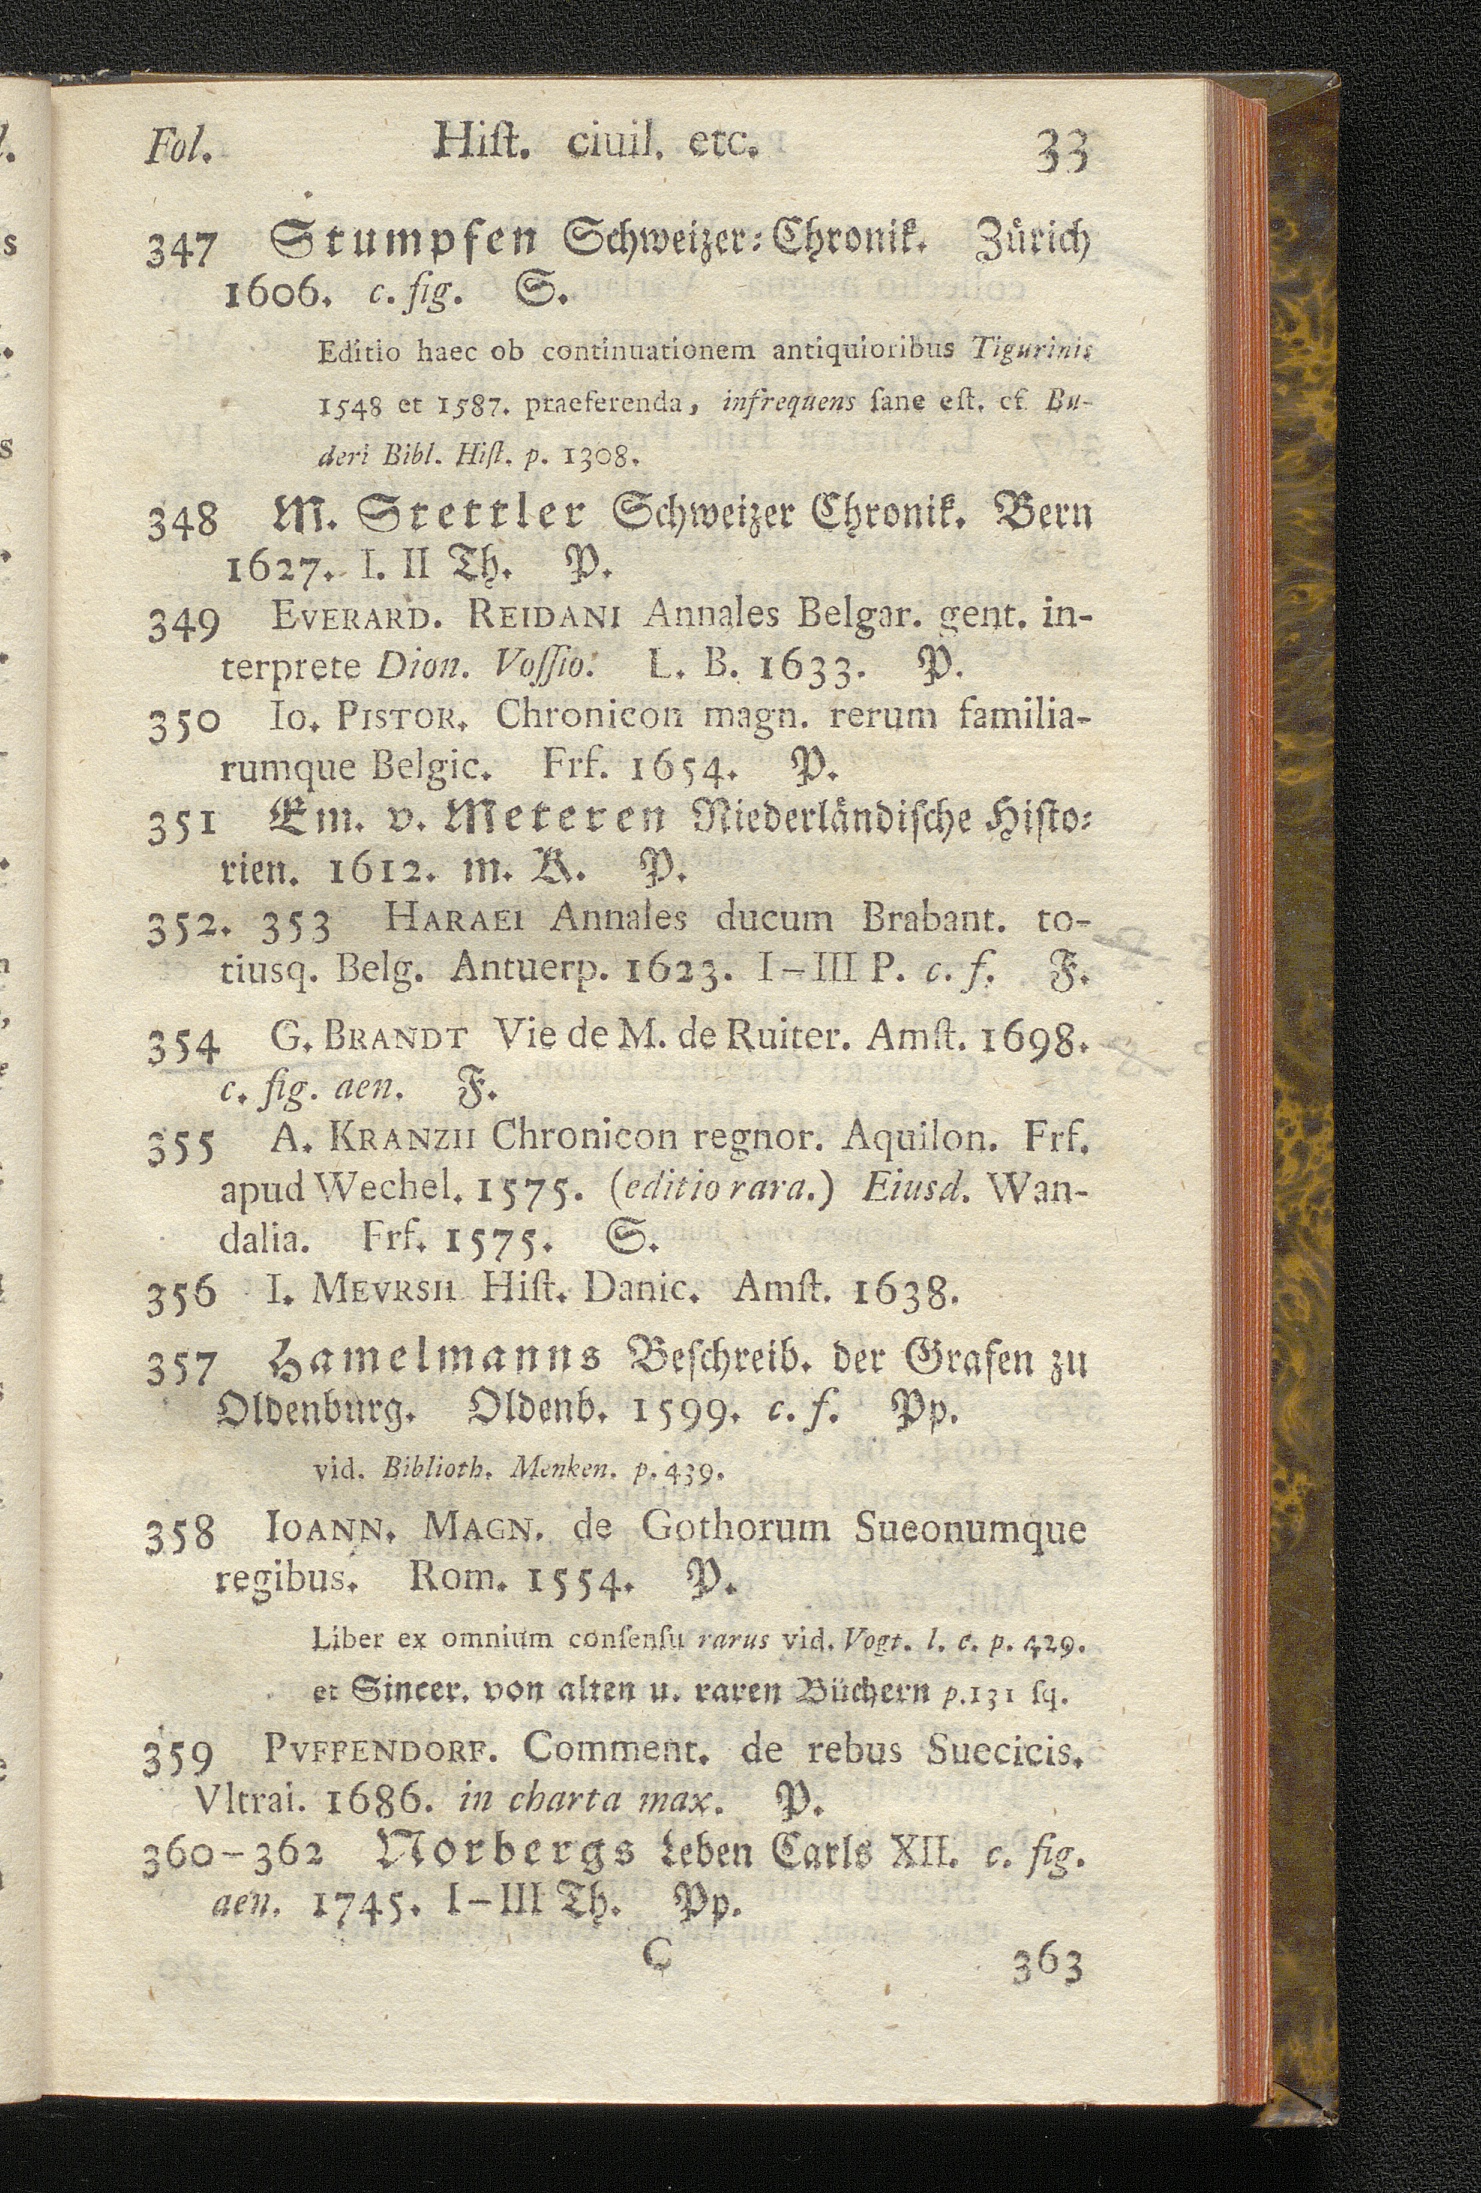 Fol. Hiſt. ciuil. etc. 33
347 Stumpfen Schweizer-Chronik. Zürich
1606. c. fig. S.
Editio haec ob continuationem antiquioribus Tigurinis
1548 et 1587. praeferenda, infrequens ſane eſt. cf. Bu-
deri Bibl. Hiſt. p. 1308.
348 M. Stettler Schweizer Chronik. Bern
1627. I. II Th. P.
349 EVERARD. REIDANI Annales Belgar. gent. in-
terprete Dion. Voſſio. L. B. 1633. P.
350 IO. PISTOR. Chronicon magn. rerum familia-
rumque Belgic. Frf. 1654. P.
351 Em. v. Meteren Niederländiſche Hiſto-
rien. 1612. m. K. P.
352. 353 HARAEI Annales ducum Brabant. to-
tiusq. Belg. Antuerp. 1623. I–III P. c. f. F.
354 G. BRANDT Vie de M. de Ruiter. Amſt. 1698.
c. fig. aen. F.
355 A. KRANZII Chronicon regnor. Aquilon. Frf.
apud Wechel. 1575. (editio rara.) Eiusd. Wan-
dalia. Frf. 1575. S.
356 I. MEVRSII Hiſt. Danic. Amſt. 1638.
357 Hamelmanns Beſchreib. der Grafen zu
Oldenburg. Oldenb. 1599. c. f. Pp.
vid. Biblioth. Menken. p. 439.
358 IOANN. MAGN. de Gothorum Sueonumque
regibus. Rom. 1554. P.
Liber ex omnium conſenſu rarus vid. Vogt. l. c. p. 429.
et Sincer. von alten u. raren Büchern p. 131 ſq.
359 PVFFENDORF. Comment. de rebus Suecicis.
Vltrai. 1686. in charta max. P.
360–362 Norbergs Leben Carls XII. c. fig.
aen. 1745. I–III Th. Pp.
C 363